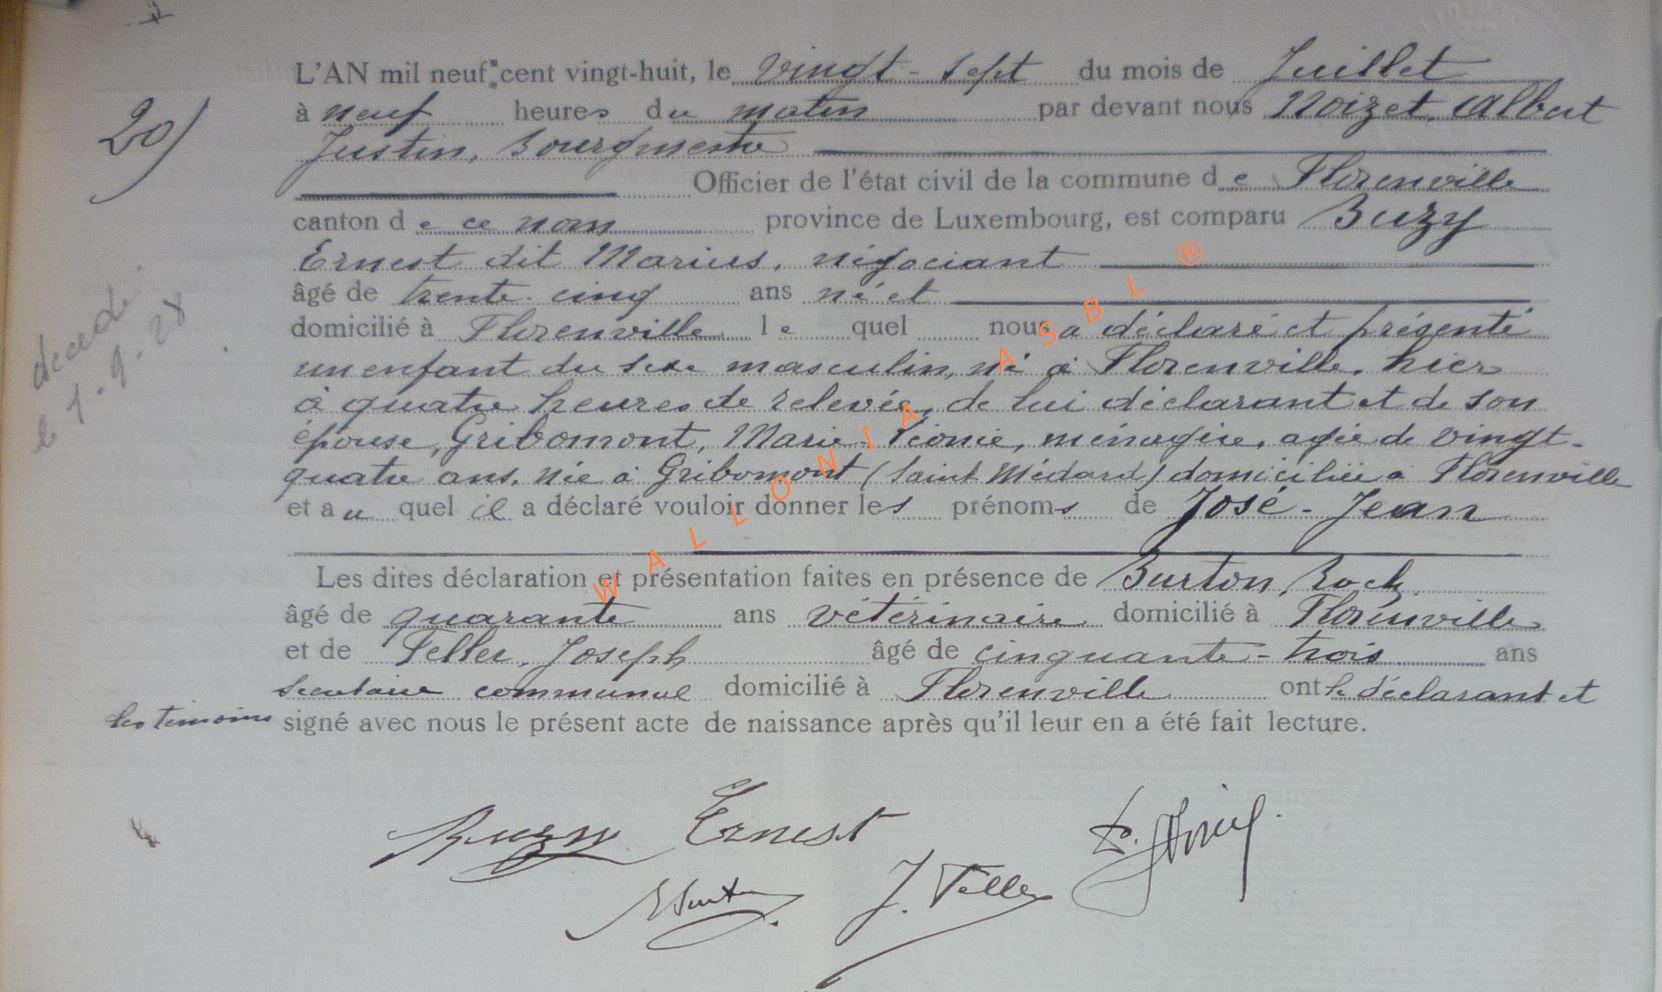 20)
L'AN mil neuf cent vingt-huit, le vingt-sept du mois de Juillet
à neuf heures du matin par devant nous Noizet, Albert
Justin, Bourgmestre
Officier de l'état civil de la commune de Florenville
canton de ce nom province de Luxembourg, est comparu Buzy
Ernest dit Marius, négociant
âgé de trente-cinq ans né et
domicilié à Florenville lequel nous a déclaré et présenté
un enfant du sexe masculin, né à Florenville, hier
à quatre heures de relevée, de lui déclarant et de son
épouse, Gribomont, Marie-Léonie, ménagère, agée de vingt-
quatre ans, née à Gribomont (Saint Médard) domiciliée à Florenville
et auquel il a déclaré vouloir donner les prénoms de José-Jean
Les dites déclaration et présentation faites en présence de Burton, Roch
âgé de quarante ans vétérinaire domicilié à Florenville
et de Feller, Joseph âgé de cinquante-trois ans
secrétaire communal domicilié à Florenville ont le déclarant et
les témoins signé avec nous le présent acte de naissance après qu'il leur en a été fait lecture.
décédé
le 1-9-28
WALLONIA ASBL ®
Buzy Ernest
J. Feller